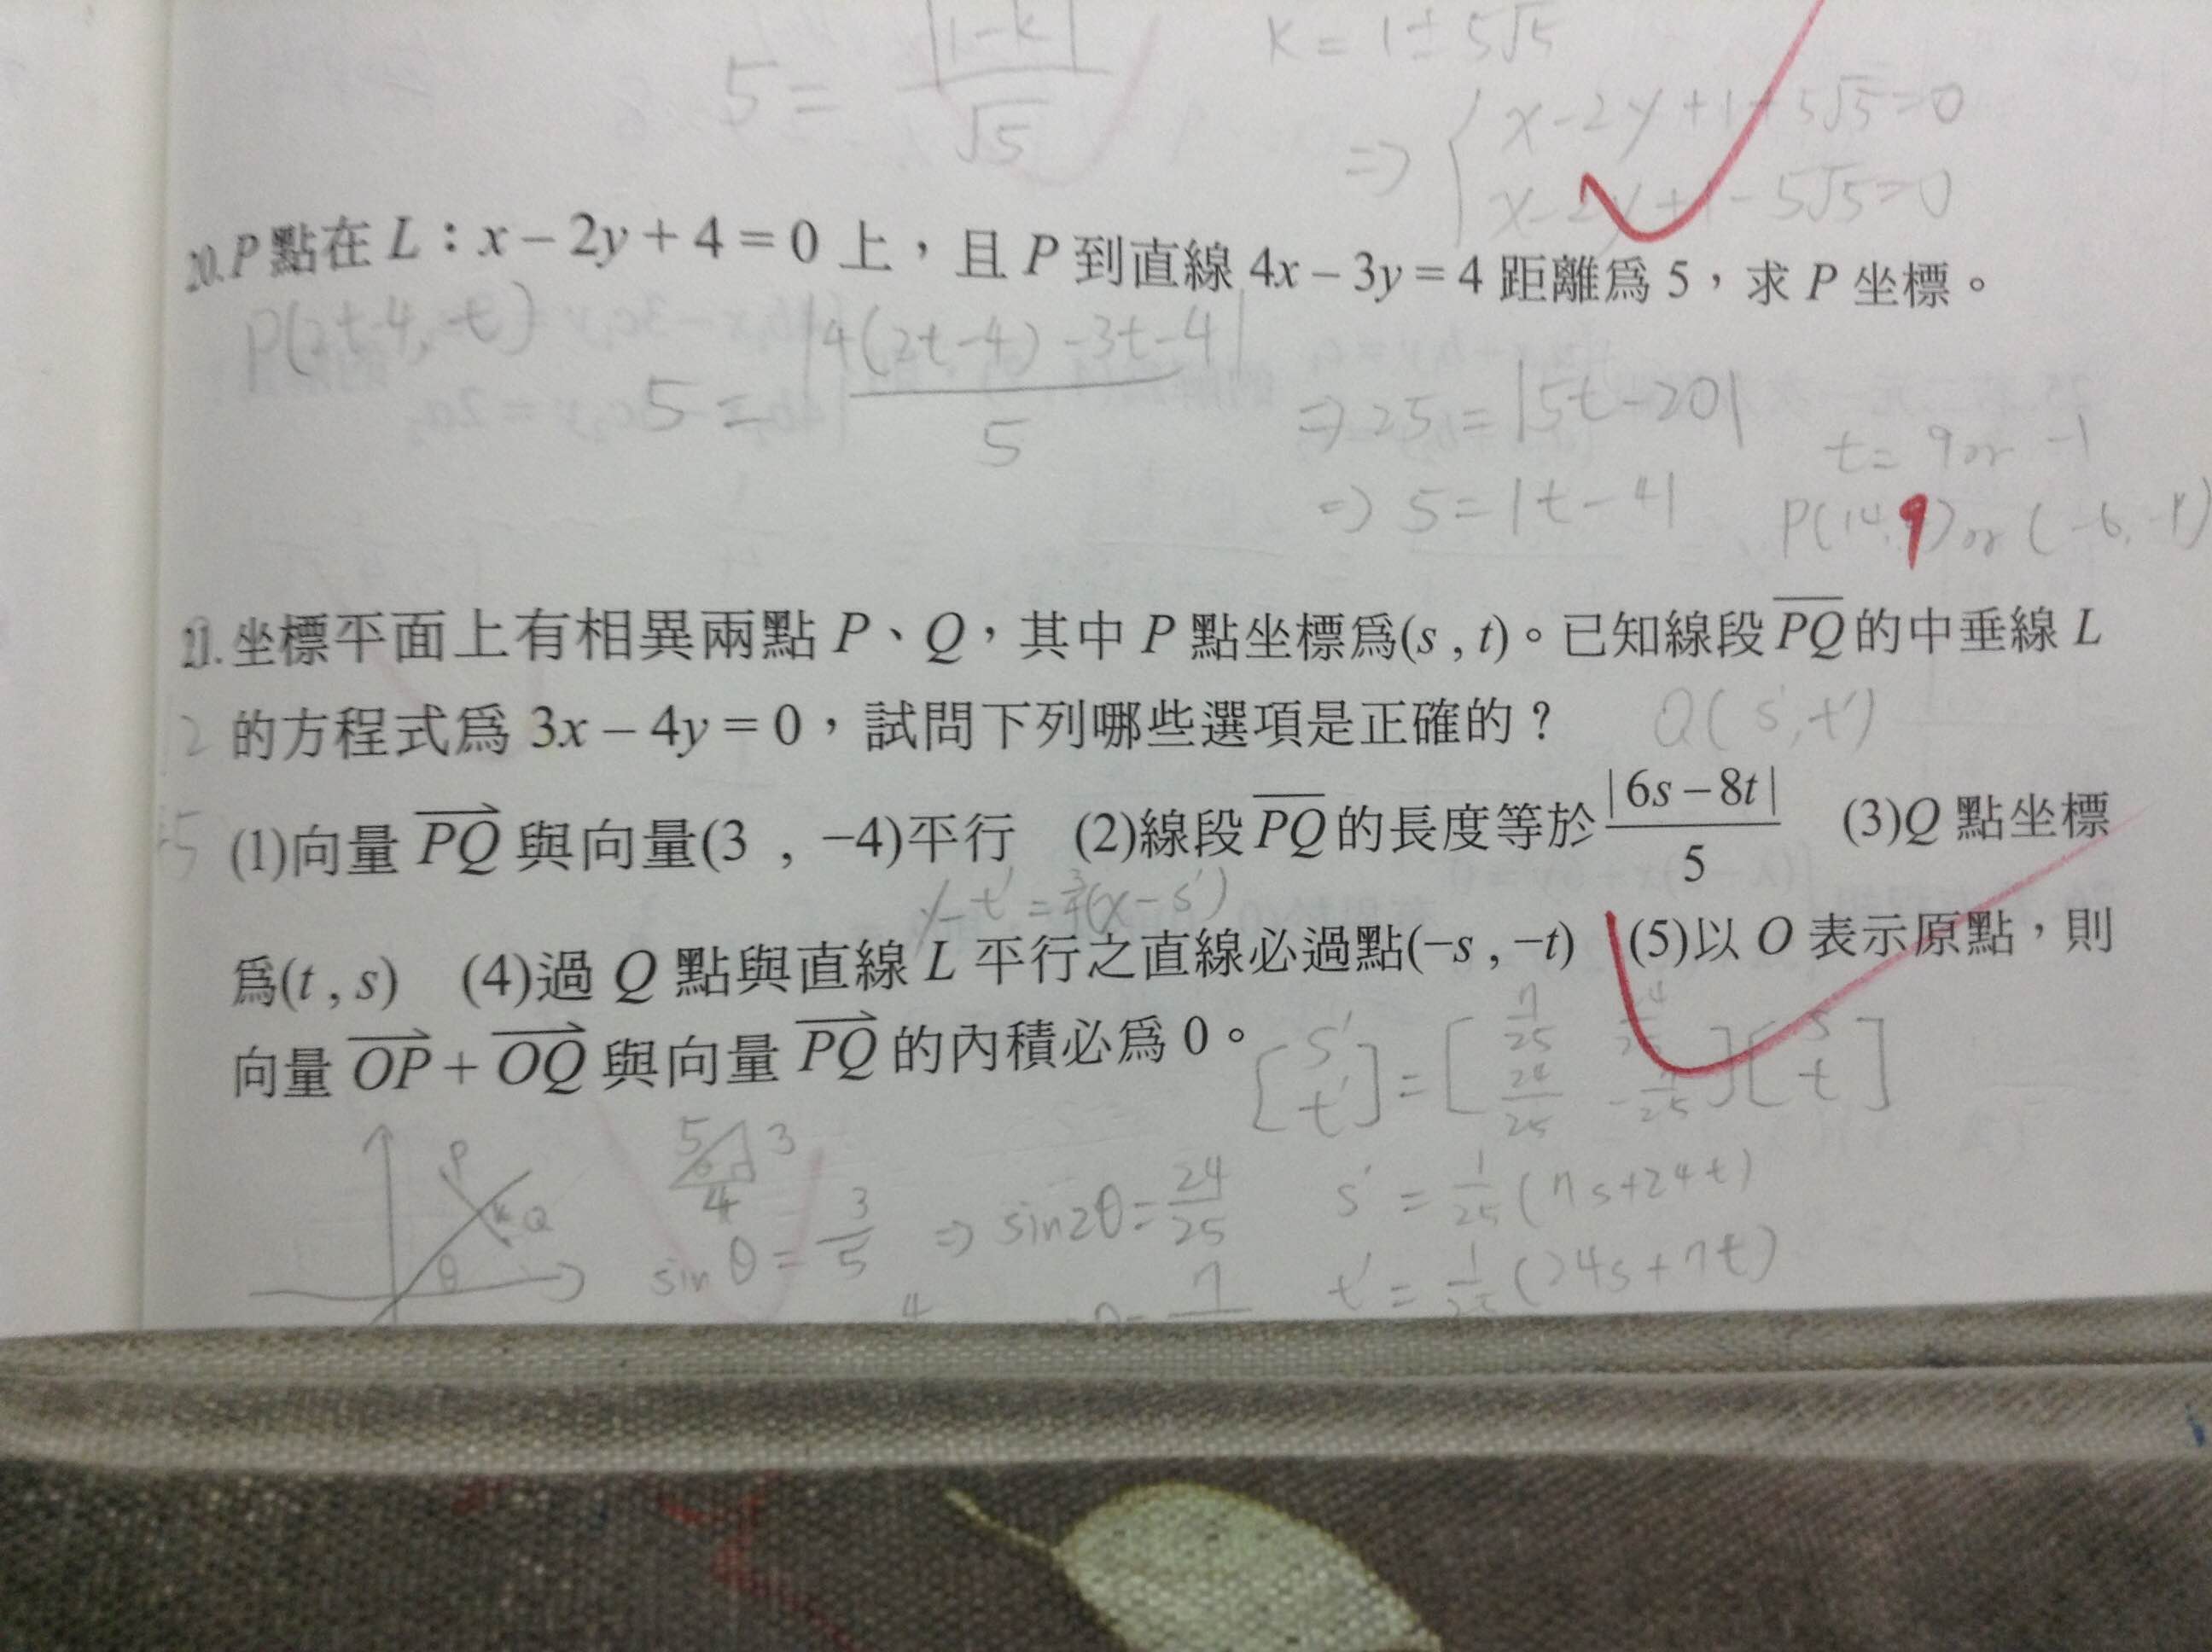 5 = |1-k| / √5
k = 1 ± 5√5
⇒ { x-2y+1+5√5=0
x-2y+1-5√5=0
20.P點在 L：x－2y＋4＝0 上，且 P 到直線 4x－3y＝4 距離爲 5，求 P 坐標。
P(2t-4, t)
5 = |4(2t-4)-3t-4| / 5
⇒ 25 = |5t-20|
⇒ 5 = |t-4|
t = 9 or -1
P(14, 9) or (-6, -1)
21.坐標平面上有相異兩點 P、Q，其中 P 點坐標爲(s , t)。已知線段 PQ 的中垂線 L
的方程式爲 3x－4y＝0，試問下列哪些選項是正確的？
Q(s', t')
(1)向量 PQ 與向量(3 , −4)平行 (2)線段 PQ 的長度等於 |6s－8t| / 5 (3)Q 點坐標
y-t' = 3/4(x-s')
爲(t , s) (4)過 Q 點與直線 L 平行之直線必過點(−s , −t) (5)以 O 表示原點，則
向量 OP＋OQ 與向量 PQ 的內積必爲 0。
[s' t'] = [7/25 24/25 24/25 -7/25][s t]
P
Q
θ
5 3
4
sin θ = 3/5 ⇒ sin2θ = 24/25
s' = 1/25 (7s+24t)
t' = 1/25 (24s+7t)